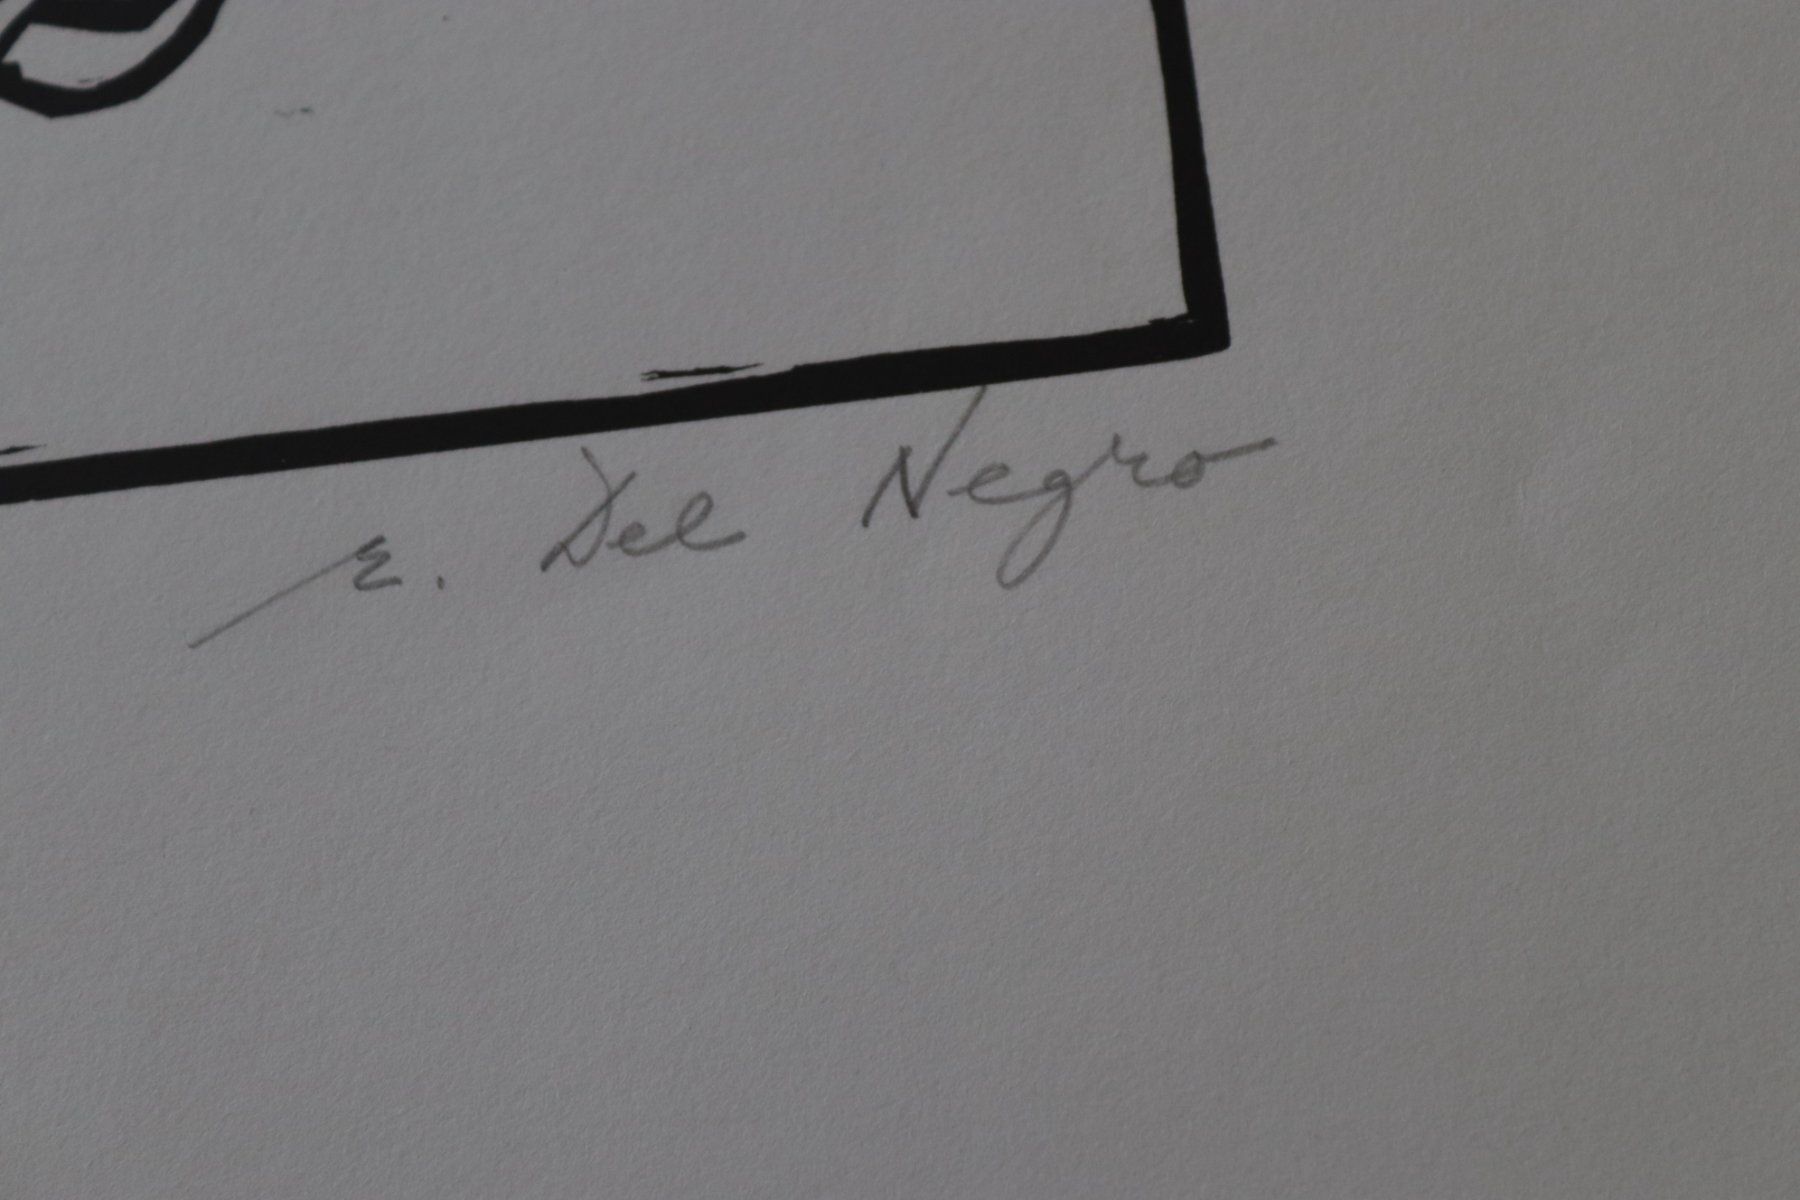 E. Del Negro